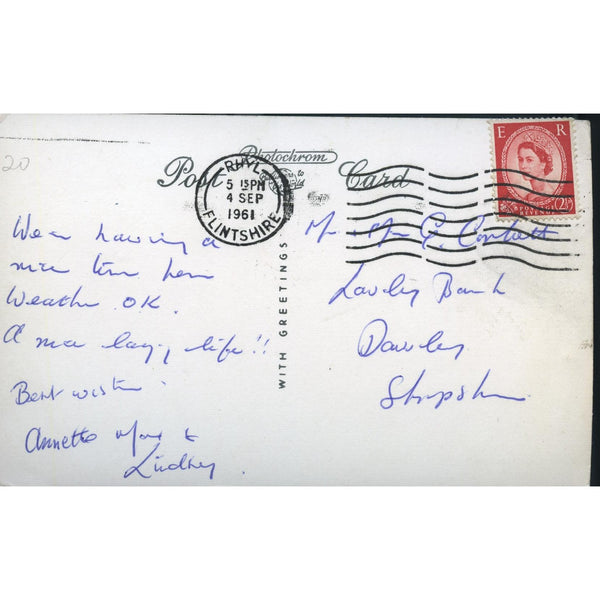 20
Photochrom
Post Card
to
RHYL
5 15PM
4 SEP
1961
FLINTSHIRE
E R
POSTAGE
REVENUE
2½
WITH GREETINGS
We are having a
nice time here
Weather OK.
A nice lazy life!!
Best wishes
Annette &
Lindsey
Mr Mrs G. Corbett
Bank
Dawley
Shropshire